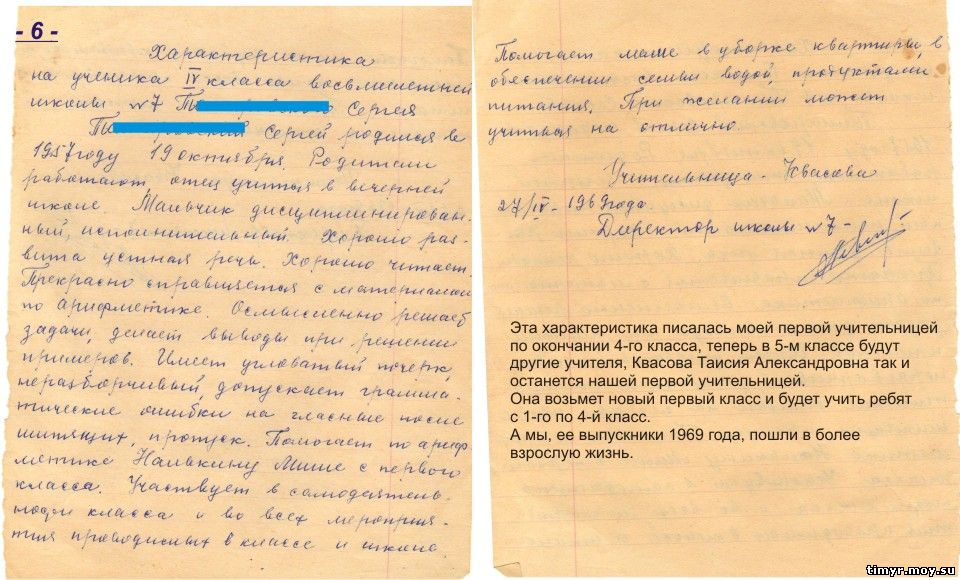 - 6 -
Характеристика
на ученика IV класса восьмилетней
школы №7 Т Сергея
Т Сергей родился в
1957 году 19 октября. Родители
работают, отец учится в вечерней
школе. Мальчик дисциплинирован-
ный, исполнительный. Хорошо раз-
вита устная речь. Хорошо читает.
Прекрасно справляется с материалом
по арифметике. Осмысленно решает
задачи, делает выводы при решении
примеров. Имеет угловатый почерк,
неразборчивый, допускает грамма-
тические ошибки на гласные после
шипящих, пропуск. Помогает по ариф
метике Мише с первого
класса. Участвует в самодеятель-
ности класса и во всех мероприя-
тия проводимых в классе и школе.
Помогает маме в уборке квартиры, в
обеспечении семьи водой, продуктами
питания. При желании может
учиться на отлично.
Учительница - Квасова
27/IV - 1969 года
Директор школы №7 -
Эта характеристика писалась моей первой учительницей
по окончании 4-го класса, теперь в 5-м классе будут
другие учителя, Квасова Таисия Александровна так и
останется нашей первой учительницей.
Она возьмет новый первый класс и будет учить ребят
с 1-го по 4-й класс.
А мы, ее выпускники 1969 года, пошли в более
взрослую жизнь.
timyr.moy.su